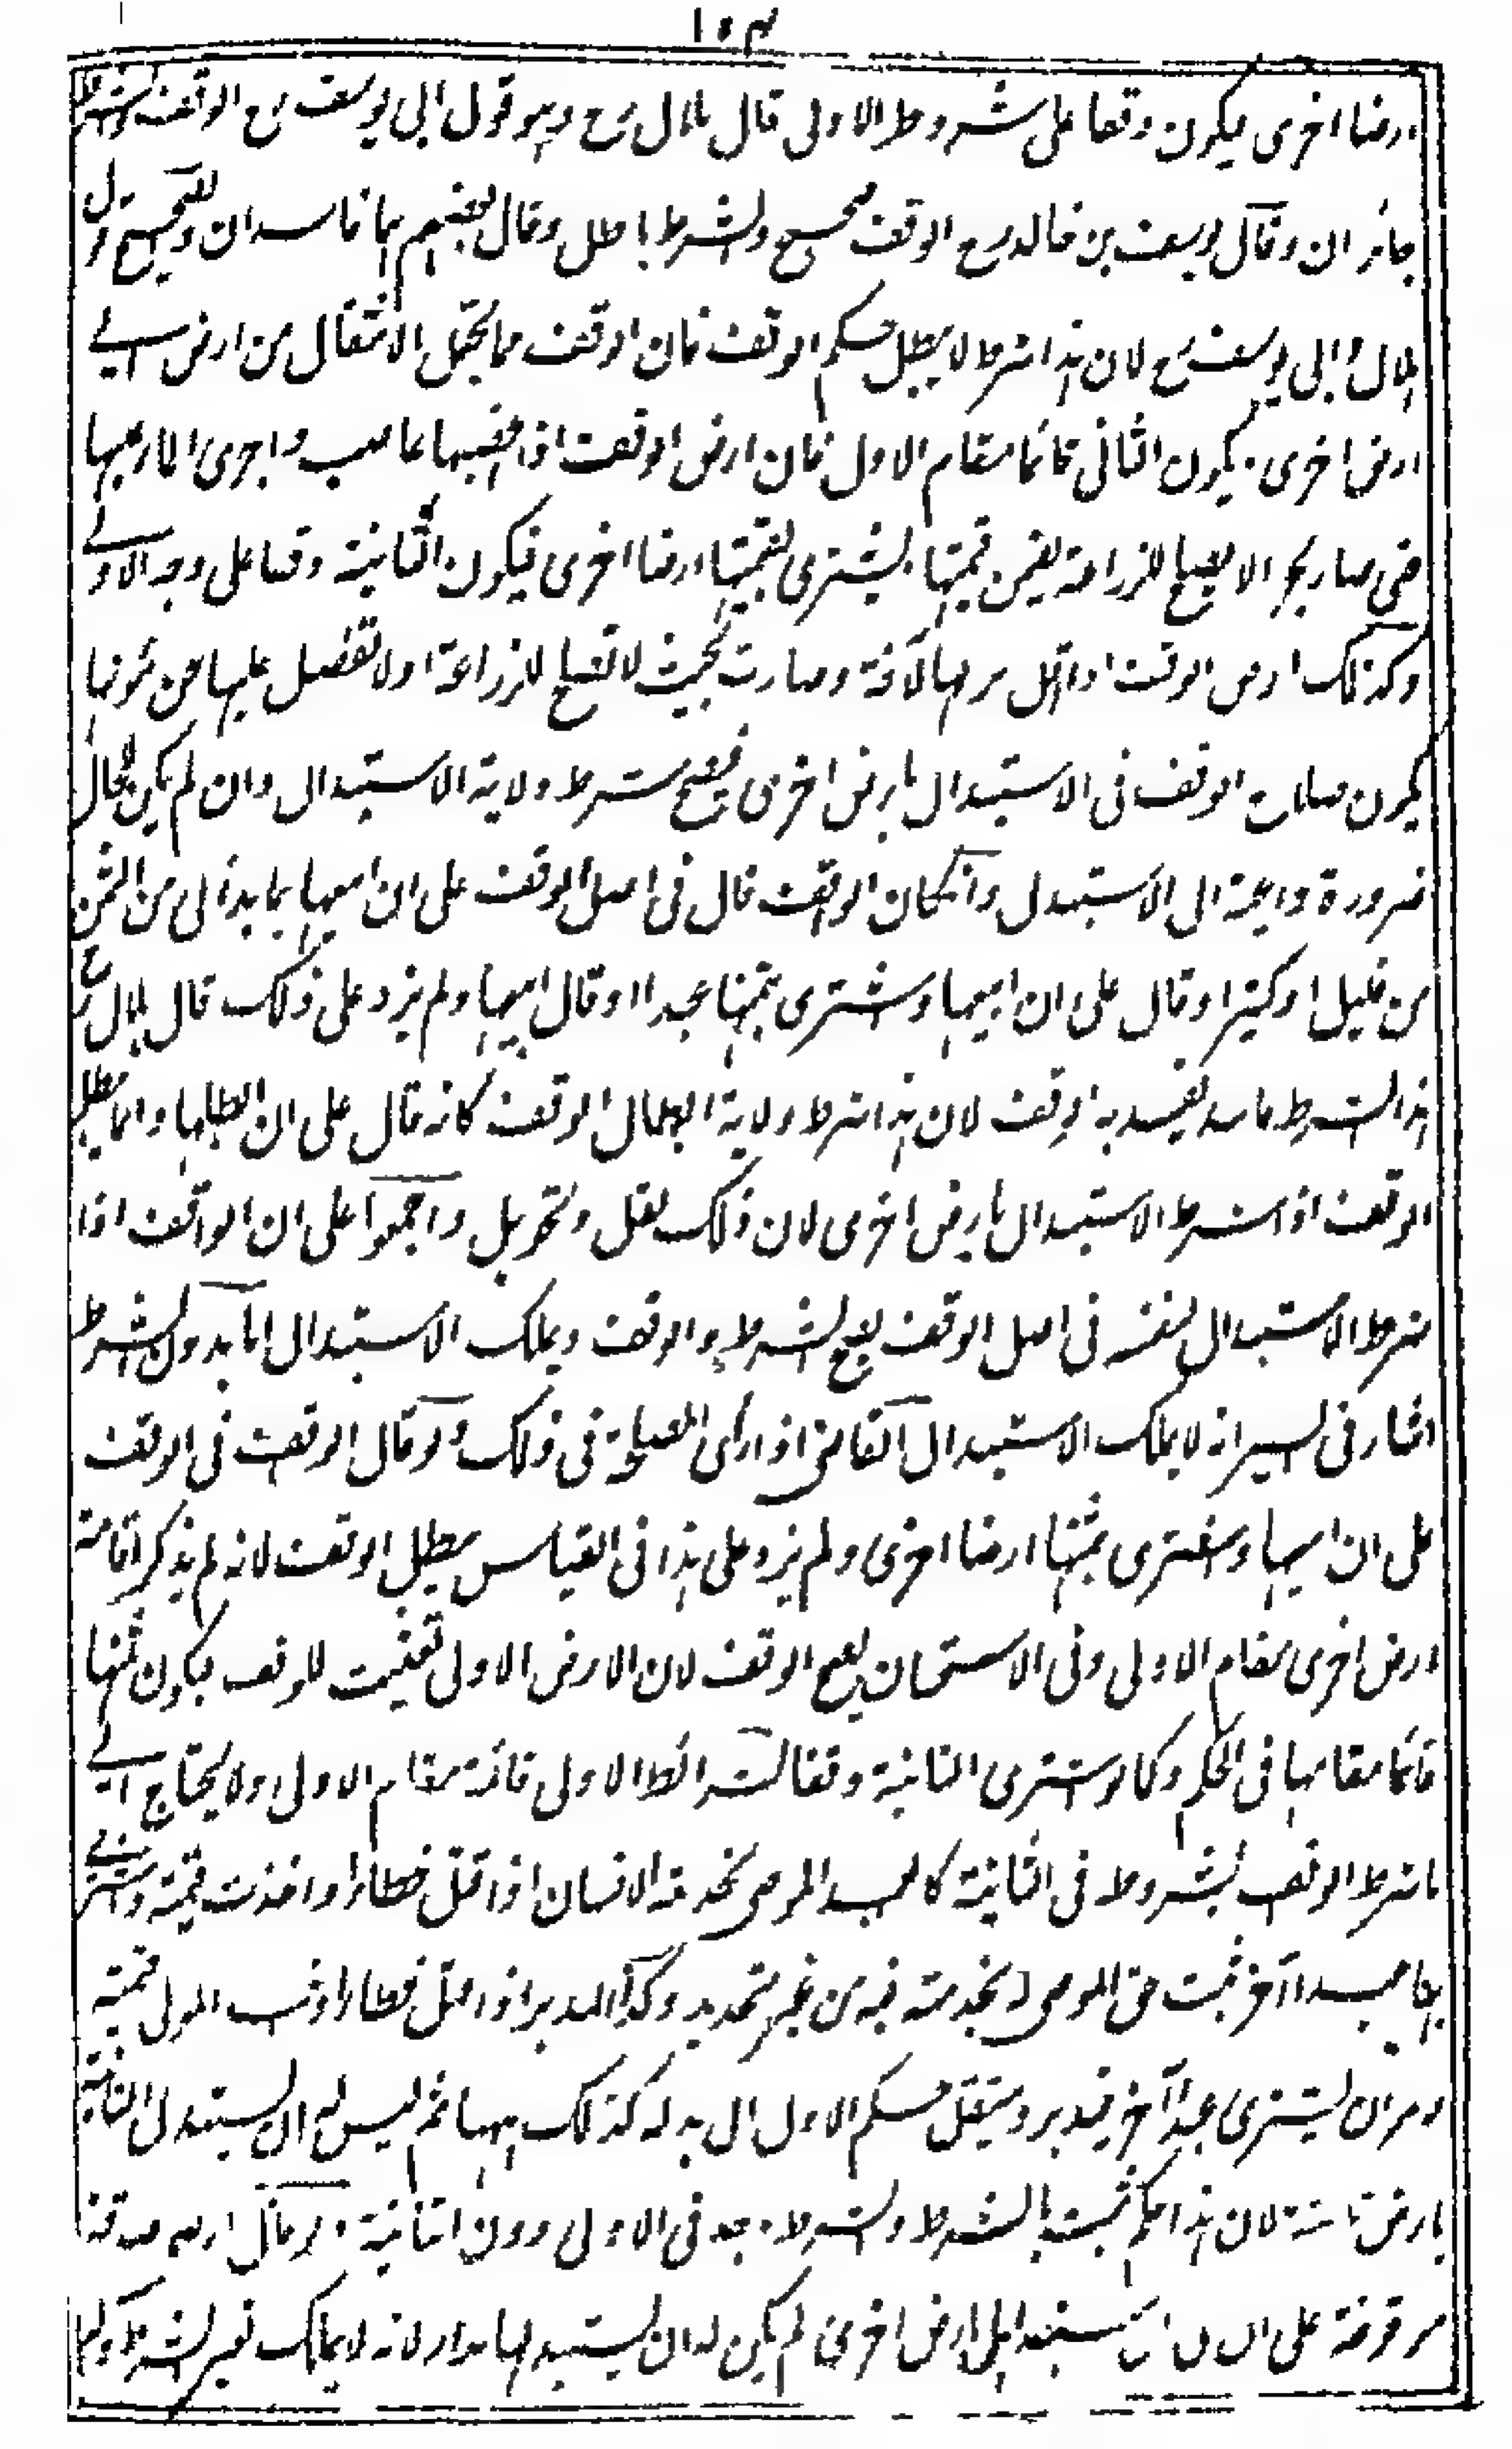 ١٥٣
ارضا اخرى يكون وقفا على شروط الاولى قال هلال رح وهو قول ابى يوسف رح الوقف والشرط
جائزان وقال يوسف بن خالد رح الوقف صحيح والشرط باطل وقال بعضهم هما فاسدان والصحيح قول
هلال وابى يوسف رح لان هذا شرط لا يبطل حكم الوقف فان الوقف مما يحتمل الانتقال من ارض الى
ارض اخرى ويكون الثانى قائما مقام الاول فان ارض الوقف اذا غصبها غاصب واجرى الماء عليها
حتى صار بحرا لا يصلح للزراعة يضمن قيمتها ويشترى بقيمتها ارضا اخرى فيكون الثانية وقفا على وجه الاولى
وكذلك ارض الوقف اذا قل نزلها لآفة وصارت بحيث لا تصلح للزراعة او لا تفضل غلتها عن مؤنها
يكون صلاح الوقف فى الاستبدال بارض اخرى فيصح شرط ولاية الاستبدال وان لم يكن للحال
ضرورة داعية الى الاستبدال وانكان الواقف قال فى اصل الوقف على ان ابيعها بما بدا لى من الثمن
من قليل او كثير او قال على ان ابيعها واشترى بثمنها عبدا او قال ابيعها ولم يزد على ذلك قال هلال رح
هذا الشرط فاسد يفسد به الوقف لان هذا شرط ولاية ابطال الوقف كانه قال على ان ابطلها وانما يبطل
الوقف اذا شرط الاستبدال بارض اخرى لان ذلك نقل وتحويل واجمعوا على ان الواقف اذا
شرط الاستبدال لنفسه فى اصل الوقف يصح الشرط والوقف ويملك الاستبدال اما بدون الشرط
اشار فى السير انه لا يملك الاستبدال الا القاضى اذا راى المصلحة فى ذلك ولو قال الواقف فى الوقف
على ان ابيعها واشترى بثمنها ارضا اخرى ولم يزد على هذا فى القياس يبطل الوقف لانه لم يذكر اقامة
ارض اخرى مقام الاولى وفى الاستحسان يصح الوقف لان الارض الاولى تعينت للوقف فيكون ثمنها
قائما مقامها فى الحكم وكما لو اشترى الثانية وقفا لشرائط الاولى قائمة مقام الاولى ولا يحتاج الى
ما شرط الوقف بشروط فى الثانية كالعبد الموصى بخدمته الانسان اذا قتل خطأ واخذت قيمته واشترى
بها عبدا آخر ثبت حق الموصى له بخدمته فيه من غير تجديد وكذا المدبر اذا قتل خطأ واخذ المولى قيمته
وامر ان يشترى عبدا آخر فيدبر وينتقل حكم الاول الى بدله كذلك ههنا ثم ليس له ان يستبدل الثانية
بارض ثالثة لان هذا حكم ثبت بالشرط والشرط وجد فى الاولى دون الثانية ولو قال ارضى صدقة
موقوفة على ان لى ان استبدلها بارض اخرى لم يكن له ان يستبدلها بدار لانه لا يملك تغيير الشرط ولو كما